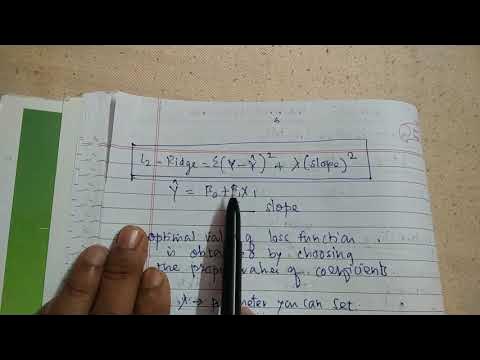 L2 - Ridge = Σ(Y - Ŷ)² + λ(slope)²
Ŷ = β₀ + β₁X₁
slope
optimal value of loss function
is obtained by choosing
the proper values of coefficients.
λ → parameter you can set.